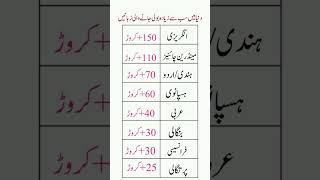 دنیا میں سب سے زیادہ بولی جانے والی زبانیں
انگریزی 150+کروڑ
مینڈرین چائنیز 110+کروڑ
ہندی/اردو 70+کروڑ
ہسپانوی 60+کروڑ
عربی 40+کروڑ
بنگالی 30+کروڑ
فرانسیسی 30+کروڑ
پرتگالی 25+کروڑ